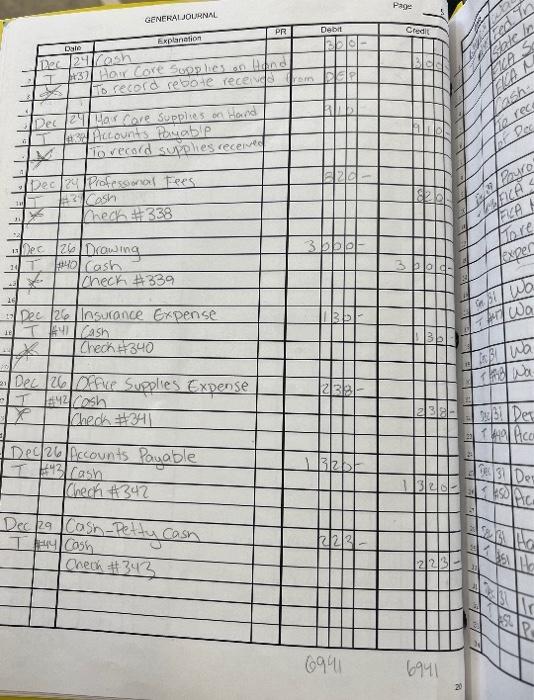 Page 5
GENERAL JOURNAL
Date Explanation PR Debit Credit
Dec 24 Cash 300-
T #37 Hair Care Supplies on Hand 300-
To record rebate received from DEP
Dec 24 Hair Care Supplies on Hand 910-
T #38 Accounts Payable 910-
To record supplies received
Dec 24 Professional Fees 820-
T #39 Cash 820-
Check #338
Dec 26 Drawing 3000-
T #40 Cash 3000-
Check #339
Dec 26 Insurance Expense 130-
T #41 Cash 130-
Check #340
Dec 26 Office Supplies Expense 238-
T #42 Cash 238-
Check #341
Dec 26 Accounts Payable 1320-
T #43 Cash 1320-
Check #342
Dec 29 Cash-Petty Cash 223-
T #44 Cash 223-
Check #343
6941 6941
20
FICA S
FICA M
Cash-
To reco
of Dec
Payro
FICA S
FICA M
To re
exper
31 Wa
Wa
Dec 31 Wa
T #48 Wa
Dec 31 Dep
T #49 Acc
Dec 31 Dep
T #50 Acc
Dec 31 Ha
T #51 Ha
Dec 31 In
T #52 P